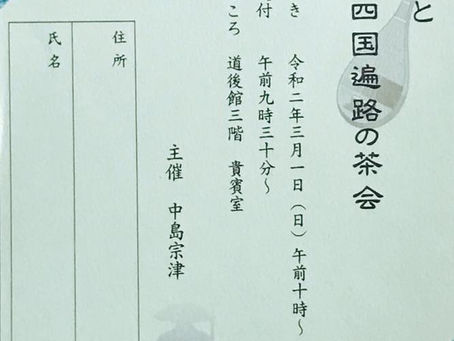 と
四国遍路の茶会
き 令和二年三月一日（日）午前十時～
付 午前九時三十分～
ころ 道後館三階 貴賓室
主催 中島宗津
住所
氏名